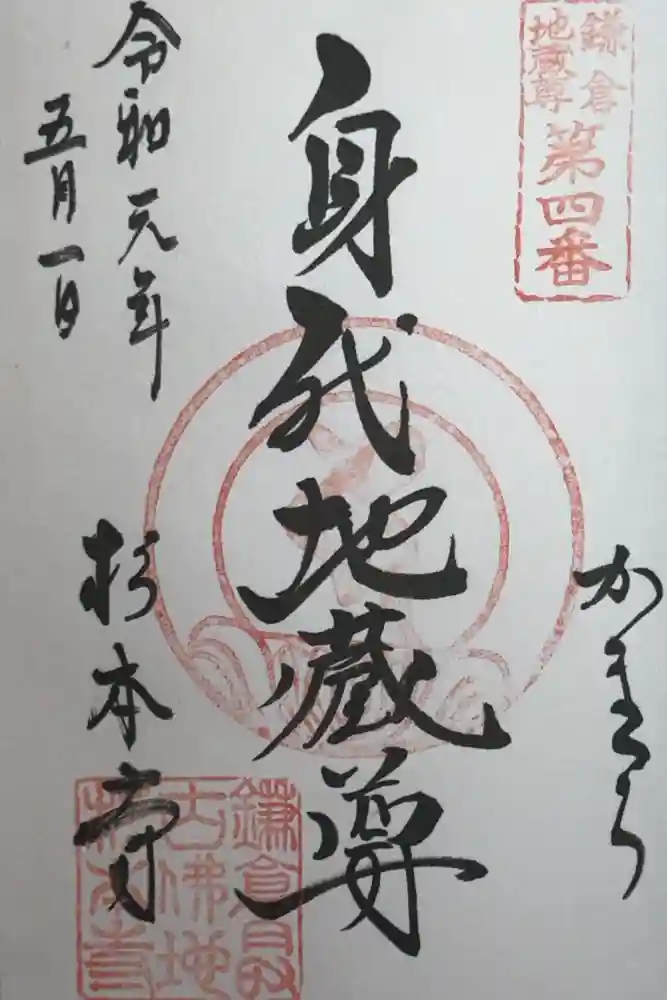 鎌倉
地蔵尊
第四番
かまくら
身代地蔵尊
令和元年
五月一日
杉本寺
鎌倉最
古佛地
杉本寺